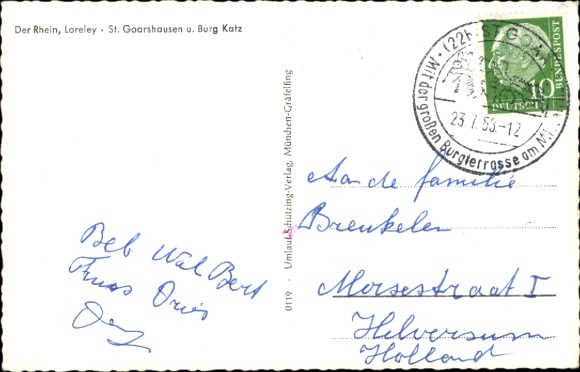 Der Rhein, Loreley · St. Goarshausen u. Burg Katz
(22b) ST. GOAR
Mit der großen Burgterrasse am
23.7.5 -12
10
DEUTSCHE
BUNDESPOST
0119 · Umlauf-Schützing-Verlag, München-Gräfelfing
Aan de familie
Breukelen
Morsestraat I
Hilversum
Holland
Beb Wal Bert
Truus Dries